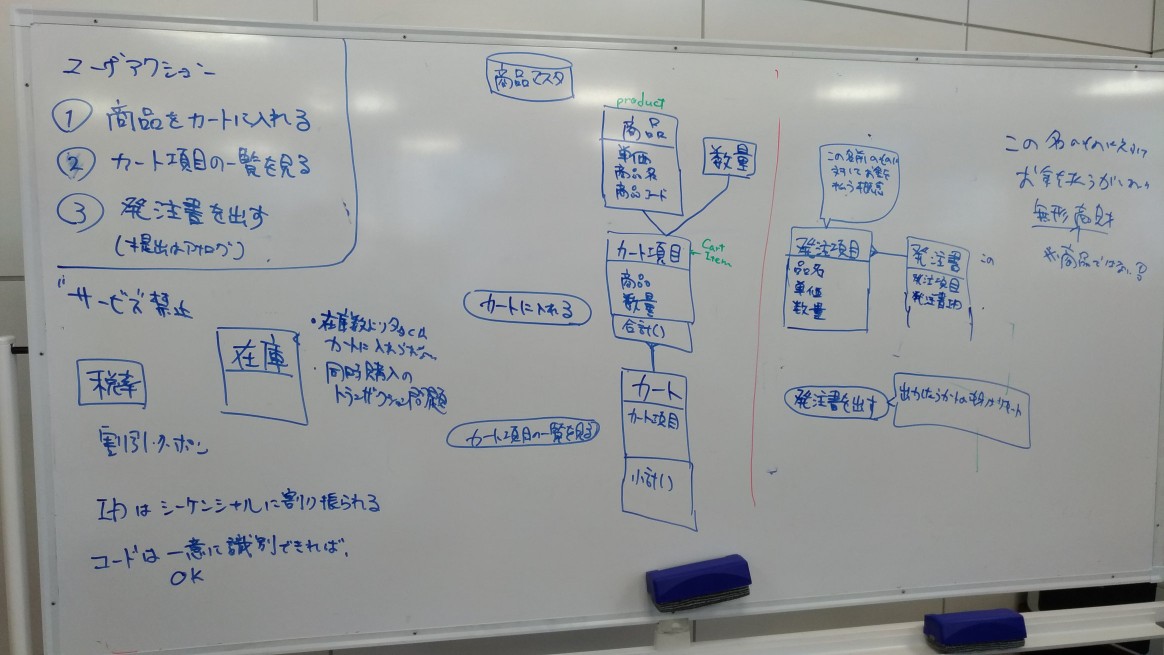 ユーザアクション
① 商品をカートに入れる
② カート項目の一覧を見る
③ 発注書を出す
(提出はアナログ)
"サービス"禁止
税率
在庫
・在庫数より多くは
カートに入れられない
・同時購入の
トランザクション問題
割引・クーポン
IDはシーケンシャルに割り振られる
コードは一意に識別できれば、
OK
商品マスタ
product
商品
単価
商品名
商品コード
数量
カート項目
Cart
Item
商品
数量
合計()
カートに入れる
カート
カート項目
小計()
カート項目の一覧を見る
この名前のものに
対してお金を
払う概念
発注項目
品名
単価
数量
発注書
発注項目
発注書ID
この
発注書を出す
出力したらカートの中身がリセット
この名のものに対して
お金を払うがいい
無形商材
※商品ではない?